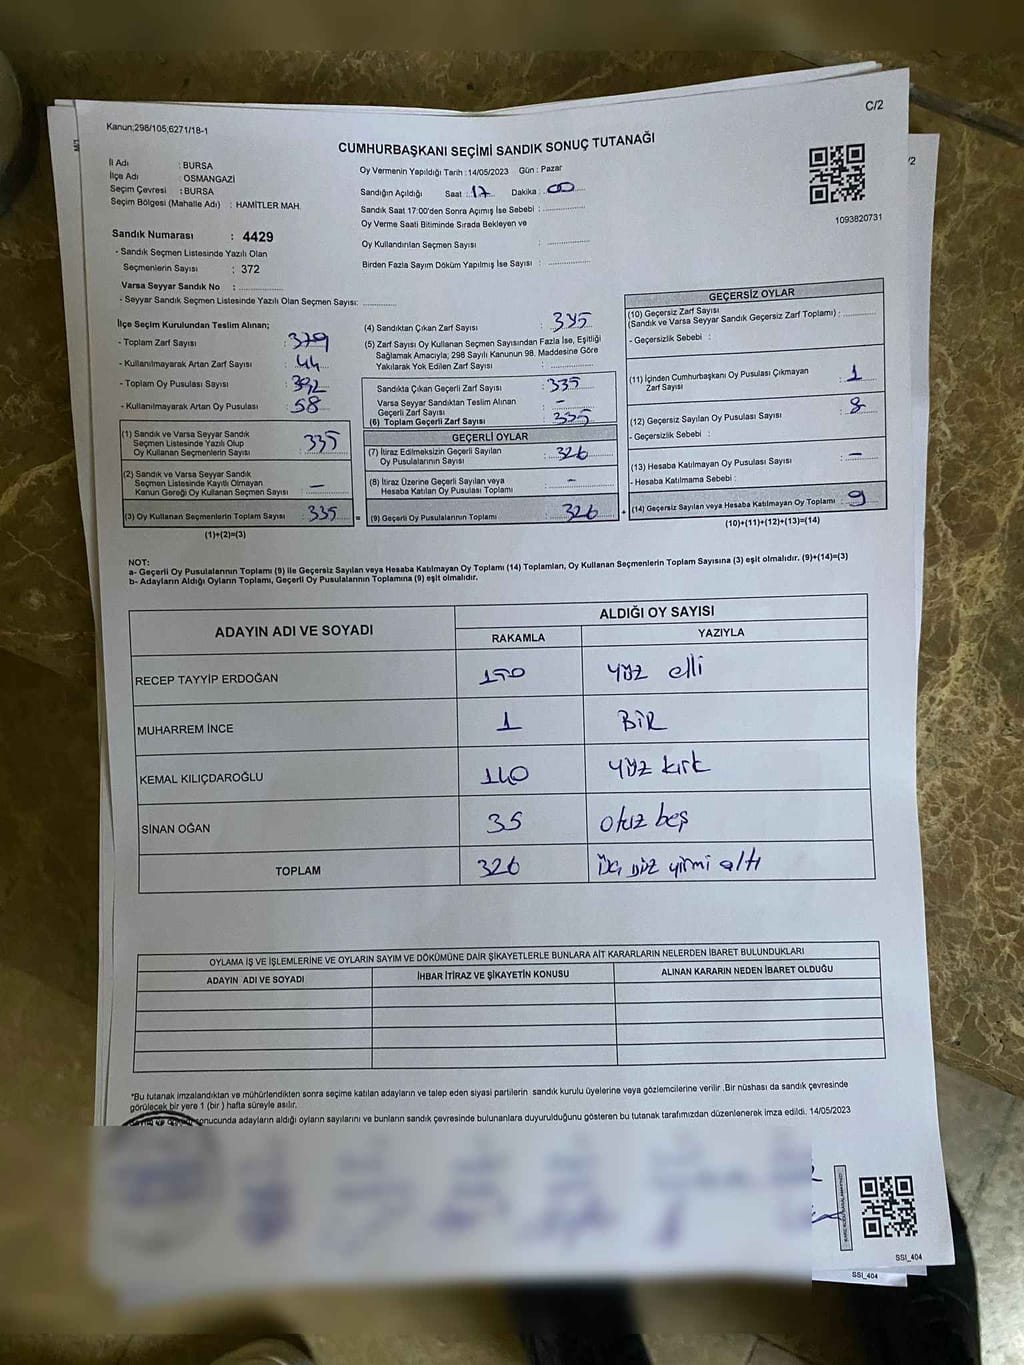 C/2
Kanun;298/105;6271/18-1
CUMHURBAŞKANI SEÇİMİ SANDIK SONUÇ TUTANAĞI
İl Adı : BURSA
İlçe Adı : OSMANGAZİ
Seçim Çevresi : BURSA
Seçim Bölgesi (Mahalle Adı) : HAMİTLER MAH.
Oy Vermenin Yapıldığı Tarih : 14/05/2023 Gün : Pazar
Sandığın Açıldığı Saat : 17 Dakika : 00
Sandık Saat 17:00'den Sonra Açımış İse Sebebi :
Oy Verme Saati Bitiminde Sırada Bekleyen ve
Oy Kullandırılan Seçmen Sayısı :
Birden Fazla Sayım Döküm Yapılmış İse Sayısı :
1093820731
Sandık Numarası : 4429
- Sandık Seçmen Listesinde Yazılı Olan
Seçmenlerin Sayısı : 372
Varsa Seyyar Sandık No :
- Seyyar Sandık Seçmen Listesinde Yazılı Olan Seçmen Sayısı:
İlçe Seçim Kurulundan Teslim Alınan;
- Toplam Zarf Sayısı : 379
- Kullanılmayarak Artan Zarf Sayısı : 44
- Toplam Oy Pusulası Sayısı : 392
- Kullanılmayarak Artan Oy Pusulası : 58
(1) Sandık ve Varsa Seyyar Sandık
Seçmen Listesinde Yazılı Olup
Oy Kullanan Seçmenlerin Sayısı : 335
(2) Sandık ve Varsa Seyyar Sandık
Seçmen Listesinde Kayıtlı Olmayan
Kanun Gereği Oy Kullanan Seçmen Sayısı : –
(3) Oy Kullanan Seçmenlerin Toplam Sayısı : 335
(1)+(2)=(3)
(4) Sandıktan Çıkan Zarf Sayısı : 335
(5) Zarf Sayısı Oy Kullanan Seçmen Sayısından Fazla İse, Eşitliği
Sağlamak Amacıyla; 298 Sayılı Kanunun 98. Maddesine Göre
Yakılarak Yok Edilen Zarf Sayısı :
Sandıkta Çıkan Geçerli Zarf Sayısı : 335
Varsa Seyyar Sandıktan Teslim Alınan
Geçerli Zarf Sayısı : –
(6) Toplam Geçerli Zarf Sayısı : 335
GEÇERLİ OYLAR
(7) İtiraz Edilmeksizin Geçerli Sayılan
Oy Pusulalarının Sayısı : 326
(8) İtiraz Üzerine Geçerli Sayılan veya
Hesaba Katılan Oy Pusulası Toplamı : –
= (9) Geçerli Oy Pusulalarının Toplamı : 326 +
GEÇERSİZ OYLAR
(10) Geçersiz Zarf Sayısı
(Sandık ve Varsa Seyyar Sandık Geçersiz Zarf Toplamı) :
- Geçersizlik Sebebi :
(11) İçinden Cumhurbaşkanı Oy Pusulası Çıkmayan
Zarf Sayısı : 1
(12) Geçersiz Sayılan Oy Pusulası Sayısı : 8
- Geçersizlik Sebebi :
(13) Hesaba Katılmayan Oy Pusulası Sayısı : –
- Hesaba Katılmama Sebebi :
(14) Geçersiz Sayılan veya Hesaba Katılmayan Oy Toplamı : 9
(10)+(11)+(12)+(13)=(14)
NOT:
a- Geçerli Oy Pusulalarının Toplamı (9) ile Geçersiz Sayılan veya Hesaba Katılmayan Oy Toplamı (14) Toplamları, Oy Kullanan Seçmenlerin Toplam Sayısına (3) eşit olmalıdır. (9)+(14)=(3)
b- Adayların Aldığı Oyların Toplamı, Geçerli Oy Pusulalarının Toplamına (9) eşit olmalıdır.
ADAYIN ADI VE SOYADI ALDIĞI OY SAYISI
RAKAMLA YAZIYLA
RECEP TAYYİP ERDOĞAN 150 yüz elli
MUHARREM İNCE 1 BİR
KEMAL KILIÇDAROĞLU 140 yüz kırk
SİNAN OĞAN 35 otuz beş
TOPLAM 326 üç yüz yirmi altı
OYLAMA İŞ VE İŞLEMLERİNE VE OYLARIN SAYIM VE DÖKÜMÜNE DAİR ŞİKAYETLERLE BUNLARA AİT KARARLARIN NELERDEN İBARET BULUNDUKLARI
ADAYIN ADI VE SOYADI İHBAR İTİRAZ VE ŞİKAYETİN KONUSU ALINAN KARARIN NEDEN İBARET OLDUĞU
*Bu tutanak imzalandıktan ve mühürlendikten sonra seçime katılan adayların ve talep eden siyasi partilerin sandık kurulu üyelerine veya gözlemcilerine verilir .Bir nüshası da sandık çevresinde
görülecek bir yere 1 (bir ) hafta süreyle asılır.
sonucunda adayların aldığı oyların sayılarını ve bunların sandık çevresinde bulunanlara duyurulduğunu gösteren bu tutanak tarafımızdan düzenlenerek imza edildi. 14/05/2023
SSİ_404
SSİ_404